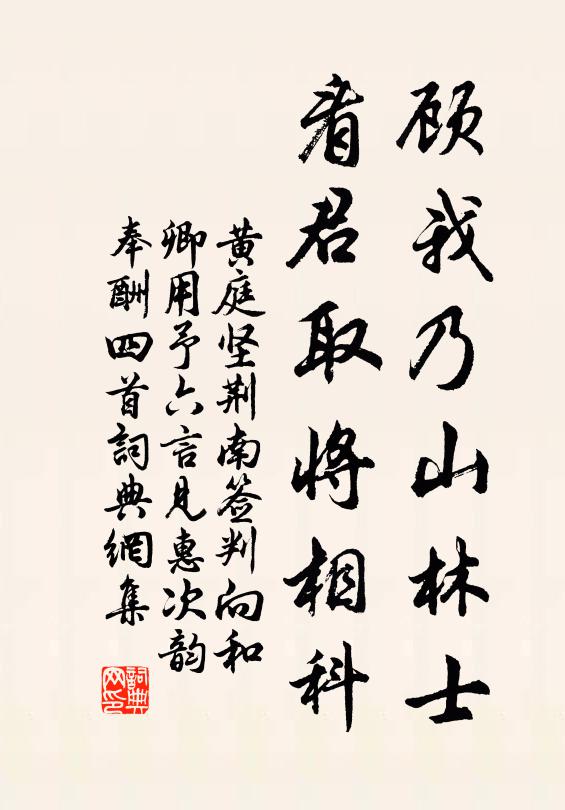 顾我乃山林士
看君取将相科
黄庭坚荆南签判向和
卿用予六言见惠次韵
奉酬四首詞典網集
詞典网印